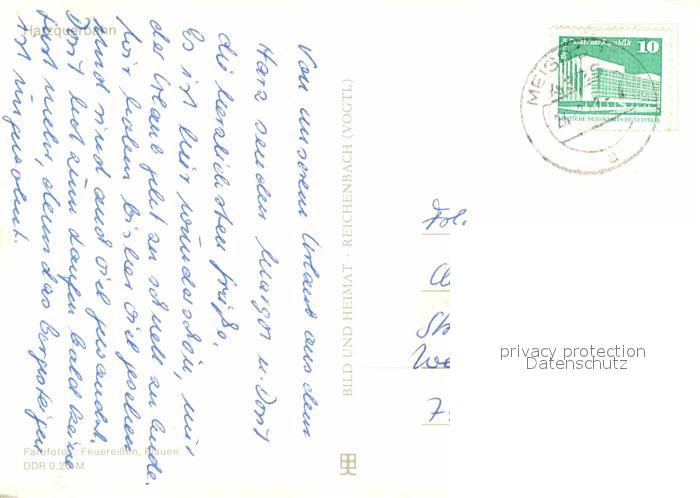 Harzquerbahn
Von unserem Urlaub aus dem
Harz senden Margot u. Dorst
die herzlichsten Grüße.
Es ist hier wunderschön, nur
der Urlaub geht zu schnell zu Ende.
Wir haben bisher viel gesehen
und sind auch viel gewandert.
hat zum Laufen bald keine
Lust mehr, denn das Bergsteigen
ist ungewohnt.
Farbfoto: Feuereißen, Plauen
DDR 0,20 M
BILD UND HEIMAT · REICHENBACH (VOGTL)
10
DEUTSCHE DEMOKRATISCHE REPUBLIK
privacy protection
Datenschutz